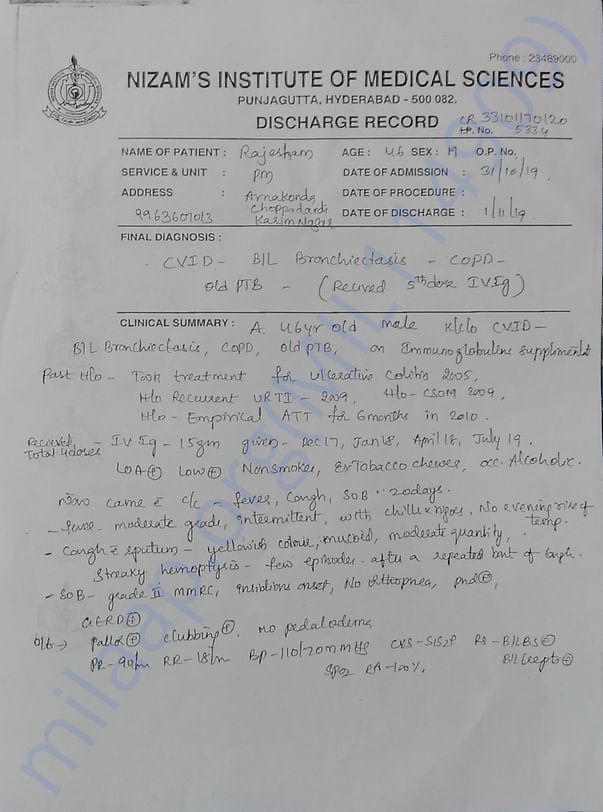 Phone : 23489000
NIZAM'S INSTITUTE OF MEDICAL SCIENCES
PUNJAGUTTA, HYDERABAD - 500 082.
DISCHARGE RECORD CR 33101170120
I.P. No. 5334
NAME OF PATIENT : Rajesham AGE : 46 SEX : M O.P. No.
SERVICE & UNIT : PM DATE OF ADMISSION : 31/10/19
ADDRESS : Arnakonda DATE OF PROCEDURE :
Choppadandi
9963607013 Karim Nagar DATE OF DISCHARGE : 1/11/19.
FINAL DIAGNOSIS :
- CVID - BIL Bronchiectasis - COPD -
Old PTB - (Recived 5th dose IVIg)
CLINICAL SUMMARY : A 46yr old male K/c/o CVID -
BIL Bronchiectasis, COPD, Old PTB, on Immunoglobuline suppliments
Past H/o - Took treatment for ulcerative Colitis 2005,
H/o Recurrent URTI - 2009, H/o - CSOM 2009,
H/o - Empirical ATT for 6months in 2010.
Recieved - IV Ig - 15gm given - Dec17, Jan18, April18, July 19.
Total 4doses
LOA⊕ LOW⊕ Non smoker, Ex Tobacco chewer, occ. Alcoholic.
Now came c c/c - fever, Cough, SOB - 20days.
- fever - moderate grade, intermittent, with chills & rigors, No evening rise of temp.
- Cough c sputum - yellowish colour, mucoid, moderate quantity,
Streaky hemoptysis - few episodes. after a repeated bout of cough.
- SOB - grade II MMRC, insidious onset, No orthopnea, pnd⊕,
GERD⊕
O/E → Pallor⊕ clubbing⊕, no pedal odema
PR - 90/m RR - 18/m BP - 110/70mmHg CVS - S1S2⊕ RS - BILBS⊕
SPO2 RA - 100%, BIL Crepts⊕
milaap.org(MIL114909)